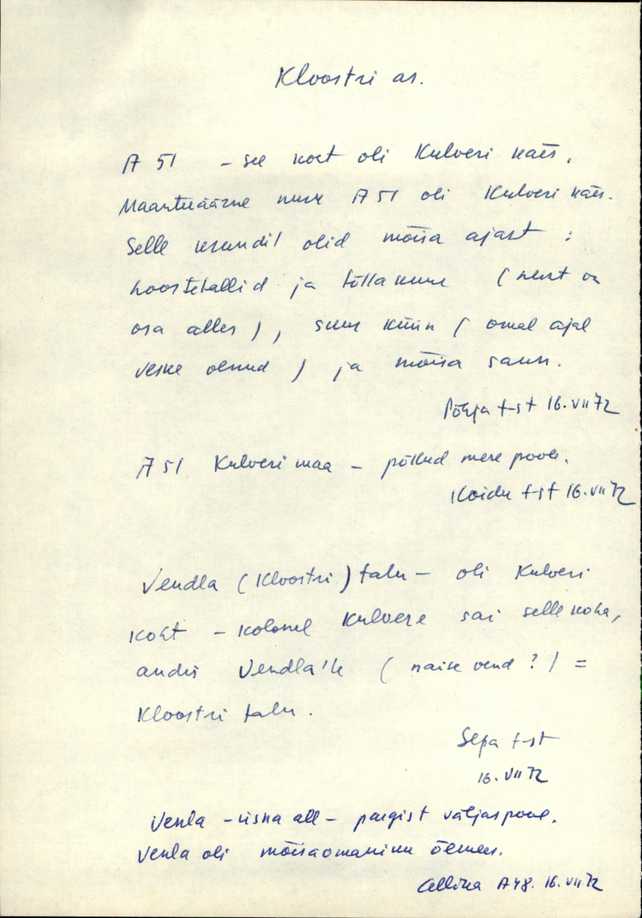 Kloostri as.
A 51 - see koht oli Kulveri käes.
Maanteäärne nurk A 51 oli Kulveri käes.
Selle krundil olid mõisa ajast :
hoostetallid ja tõllakuur (neist on
osa alles), suur küün (omal ajal
veske olnud) ja mõisa saun.
Põhja t-st 16.VII 72
A 51 Kulveri maa - põllud mere pool.
Koidu t-st 16.VII 72
Vendla (Kloostri) talu - oli Kulveri
koht - kolonel Kulvere sai selle koha,
andis Vendla'le (naise vend ?) =
Kloostri talu.
Sepa t-st
16.VII 72
Venla - üsna all - pargist väljaspool.
Venla oli mõisaomaniku õemees.
A48. 16.VII 72